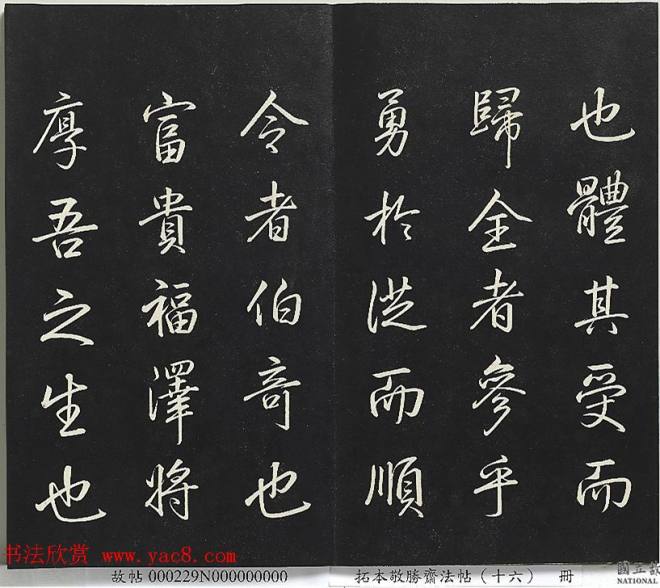 也體其受而
歸全者參乎
勇於從而順
令者伯奇也
富貴福澤將
厚吾之生也
书法欣赏 www.yac8.com
故帖 000229N000000000
拓本敬勝齋法帖（十六） 冊
國立故
NATIONAL